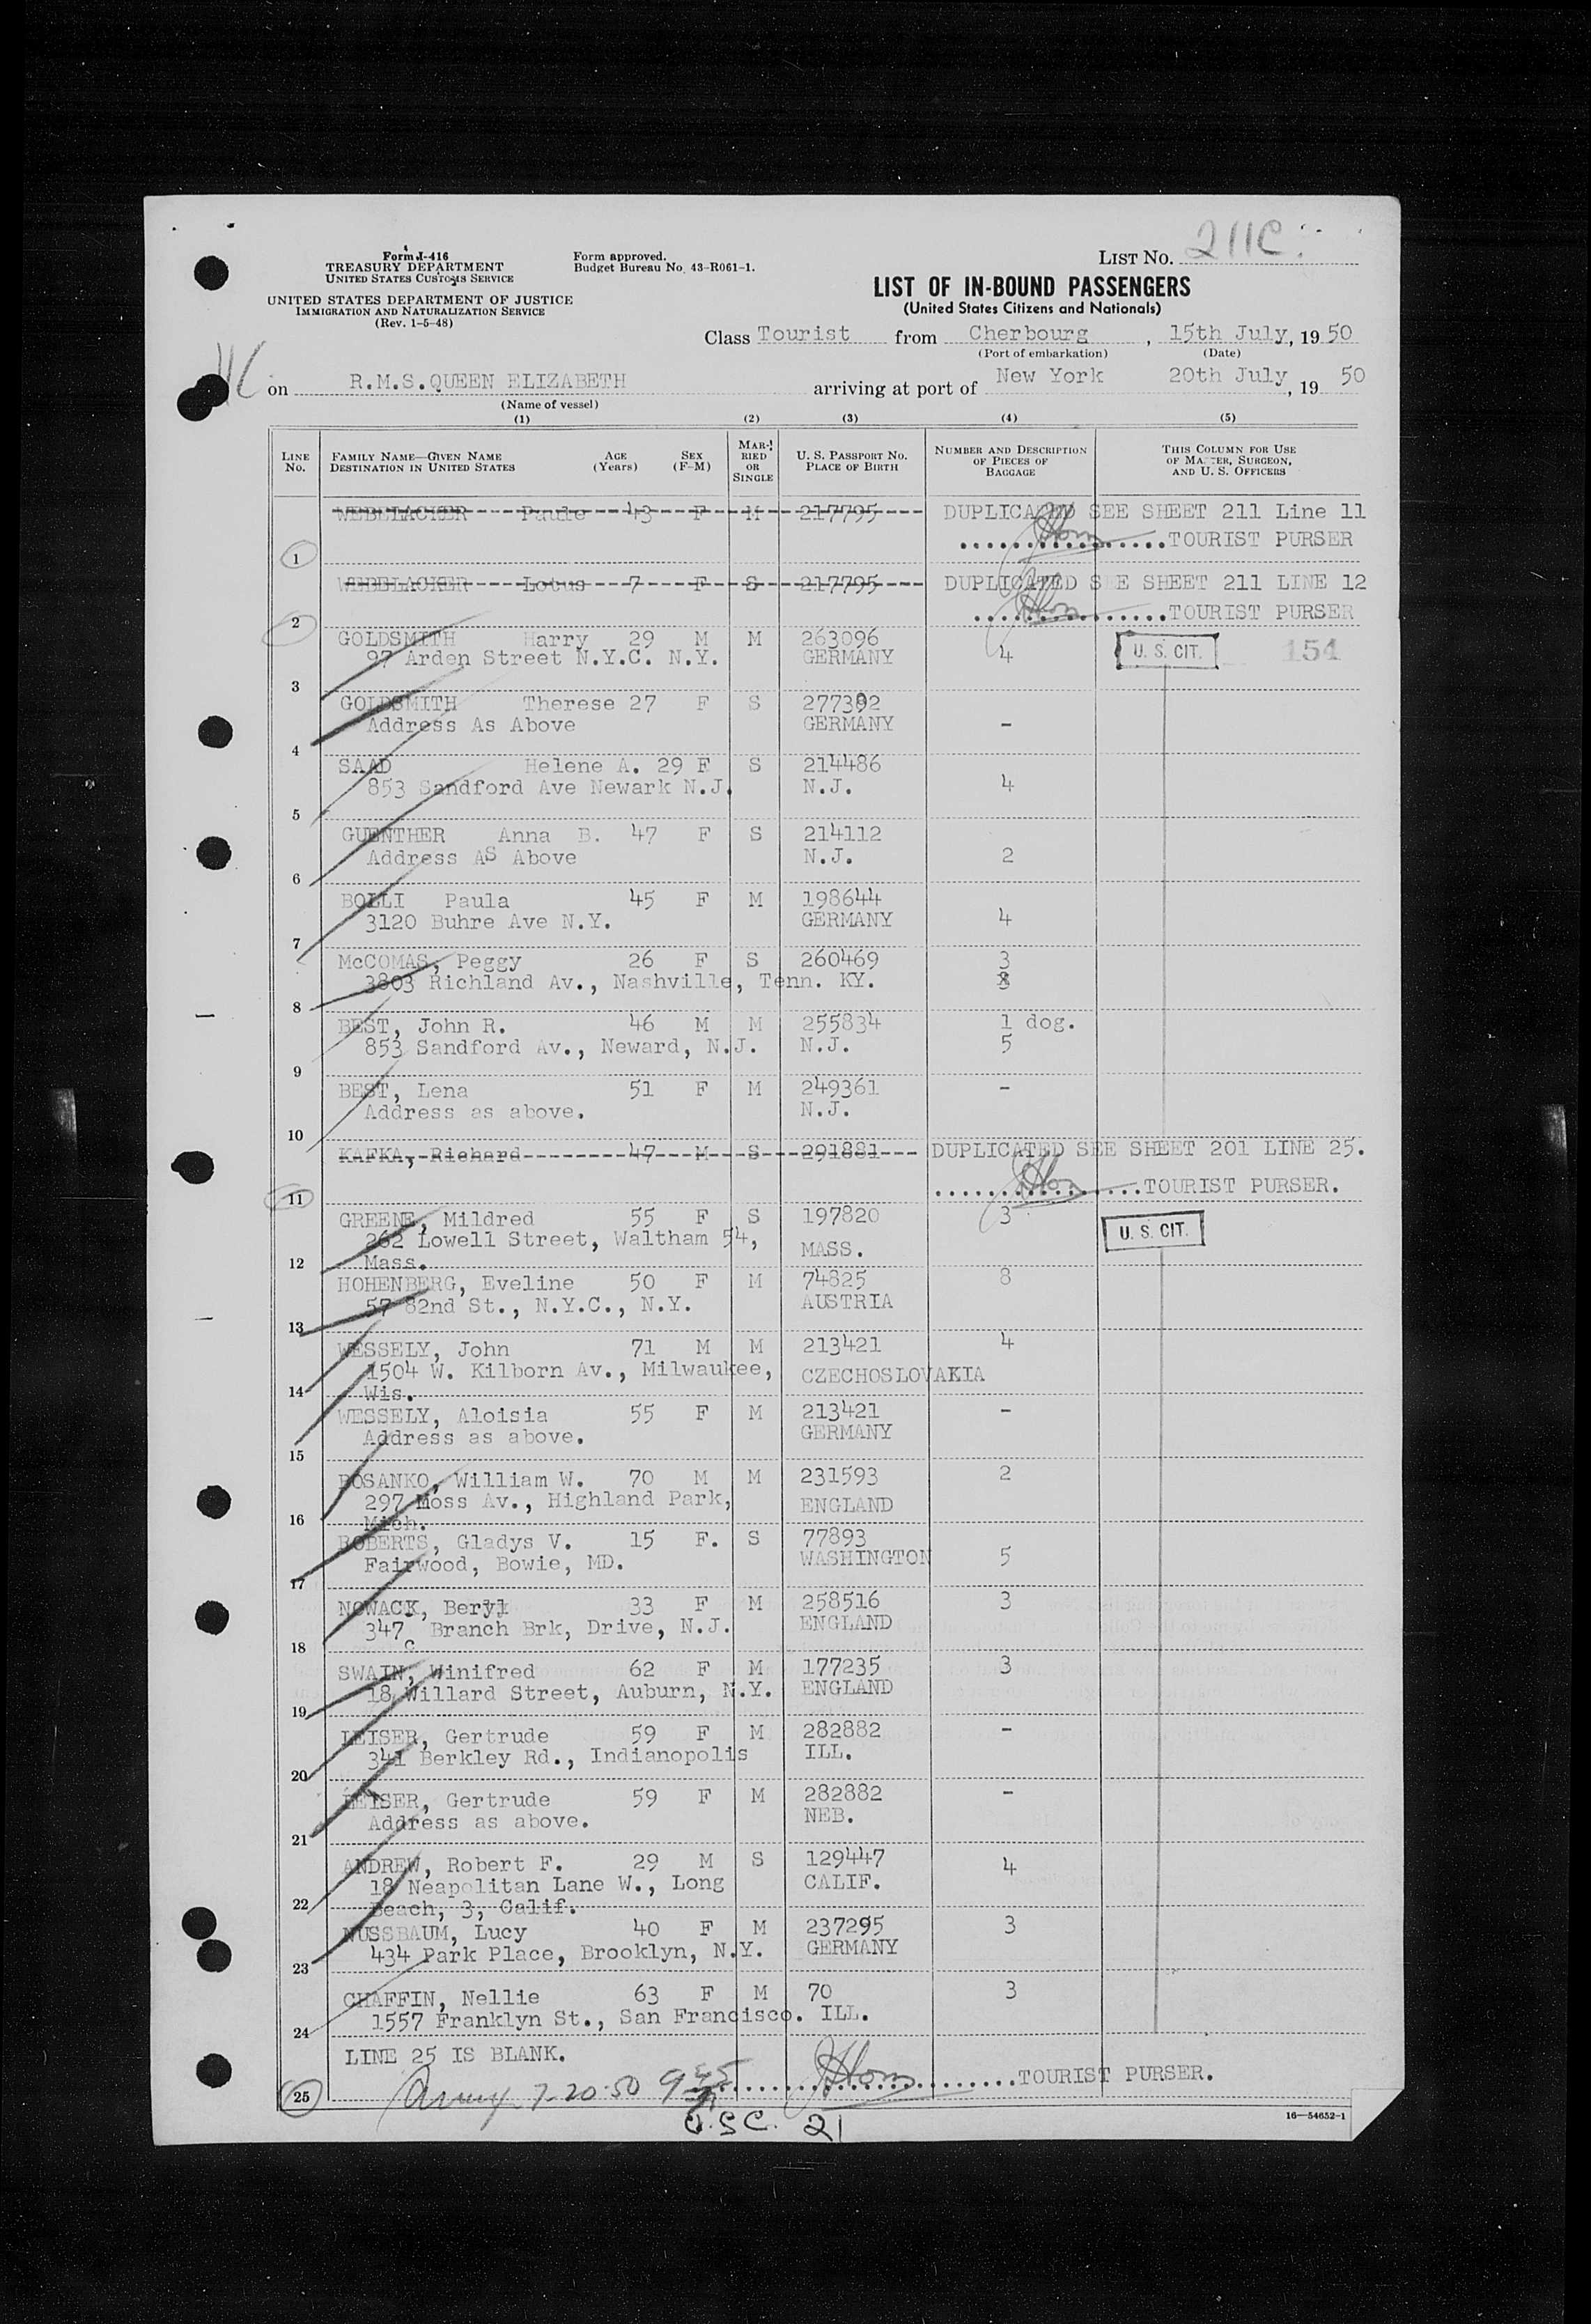 211C
Form I-416
TREASURY DEPARTMENT
UNITED STATES CUSTOMS SERVICE
UNITED STATES DEPARTMENT OF JUSTICE
IMMIGRATION AND NATURALIZATION SERVICE
(Rev. 1-5-48)
Form approved.
Budget Bureau No. 43-R061-1.
LIST NO.
LIST OF IN-BOUND PASSENGERS
(United States Citizens and Nationals)
Class Tourist from Cherbourg, 15th July, 1950
(Port of embarkation) (Date)
on R.M.S.QUEEN ELIZABETH arriving at port of New York 20th July, 1950
(Name of vessel)
(1) (2) (3) (4) (5)
LINE NO. FAMILY NAME—GIVEN NAME DESTINATION IN UNITED STATES AGE (Years) SEX (F-M) MARRIED OR SINGLE U. S. PASSPORT NO. PLACE OF BIRTH NUMBER AND DESCRIPTION OF PIECES OF BAGGAGE THIS COLUMN FOR USE OF MASTER, SURGEON, AND U. S. OFFICERS
WEBELACKER Paule 43 F M 217795 DUPLICATED SEE SHEET 211 Line 11
TOURIST PURSER
1
WEBELACKER Lotus 7 F S 217795 DUPLICATED SEE SHEET 211 LINE 12
TOURIST PURSER
2
GOLDSMITH Harry 29 M M 263096
97 Arden Street N.Y.C. N.Y. GERMANY 4 U. S. CIT. 154
3
GOLDSMITH Therese 27 F S 277392
Address As Above GERMANY -
4
SAAD Helene A. 29 F S 214486
853 Sandford Ave Newark N.J. N.J. 4
5
GUENTHER Anna B. 47 F S 214112
Address AS Above N.J. 2
6
BOLLI Paula 45 F M 198644
3120 Buhre Ave N.Y. GERMANY 4
7
McCOMAS, Peggy 26 F S 260469 3
3803 Richland Av., Nashville, Tenn. KY.
8
BEST, John R. 46 M M 255834 1 dog.
853 Sandford Av., Neward, N.J. N.J. 5
9
BEST, Lena 51 F M 249361 -
Address as above. N.J.
10
KAFKA, Richard 47 M S 291881 DUPLICATED SEE SHEET 201 LINE 25.
TOURIST PURSER.
11
GREENE, Mildred 55 F S 197820 3
262 Lowell Street, Waltham 54, MASS. U. S. CIT.
12 Mass.
HOHENBERG, Eveline 50 F M 74825 8
57 82nd St., N.Y.C., N.Y. AUSTRIA
13
WESSELY, John 71 M M 213421 4
1504 W. Kilborn Av., Milwaukee, CZECHOSLOVAKIA
14 Wis.
WESSELY, Aloisia 55 F M 213421 -
Address as above. GERMANY
15
BOSANKO, William W. 70 M M 231593 2
297 Moss Av., Highland Park, ENGLAND
16 Mich.
ROBERTS, Gladys V. 15 F. S 77893
Fairwood, Bowie, MD. WASHINGTON 5
17
NOWACK, Beryl 33 F M 258516 3
347 Branch Brk, Drive, N.J. ENGLAND
18
SWAIN, Winifred 62 F M 177235 3
18 Willard Street, Auburn, N.Y. ENGLAND
19
LEISER, Gertrude 59 F M 282882 -
341 Berkley Rd., Indianopolis ILL.
20
LEISER, Gertrude 59 F M 282882 -
Address as above. NEB.
21
ANDREW, Robert F. 29 M S 129447 4
18 Neapolitan Lane W., Long CALIF.
22 Beach, 3, Calif.
NUSSBAUM, Lucy 40 F M 237295 3
434 Park Place, Brooklyn, N.Y. GERMANY
23
CHAFFIN, Nellie 63 F M 70 3
1557 Franklyn St., San Francisco. ILL.
24
LINE 25 IS BLANK.
25 7-20-50 TOURIST PURSER.
U.S.C. 21
16—54652-1